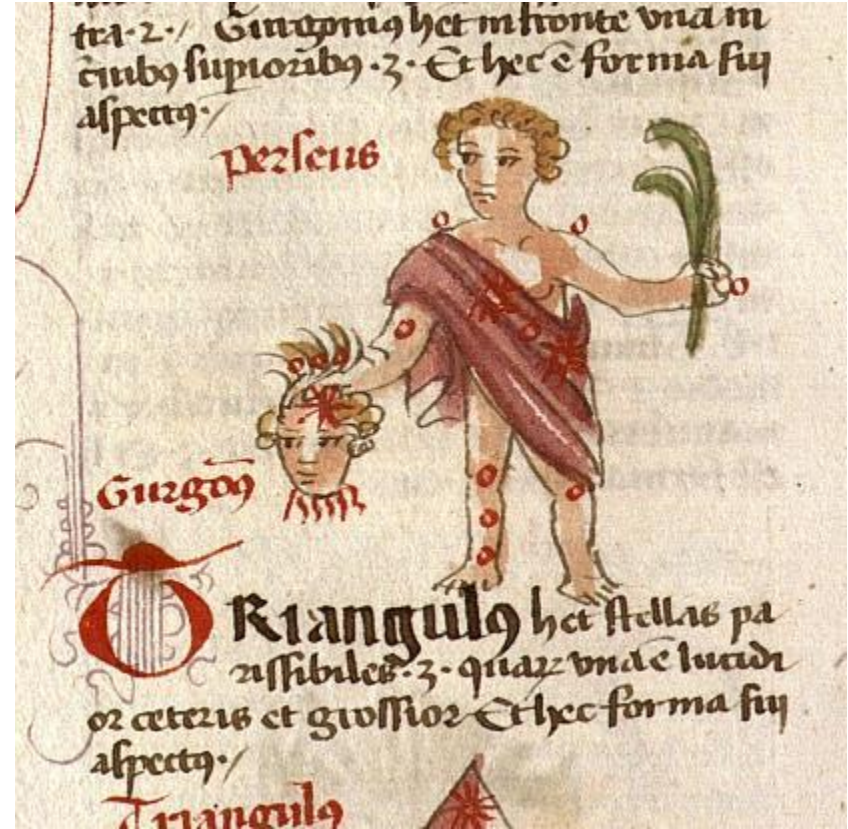 tra · 2 · / Gurgoniꝰ het in fronte vna m
ciubꝫ supioribꝫ · 3 · Et hec ē forma sui
aspectꝰ · /
perseus
Gurgōꝰ
TRiangulꝰ het stellas pa
rissibiles · 3 · quaꝝ vna ē lucidi
or ceteris et grossior Et hec forma sui
aspectꝰ · /
Triangulꝰ